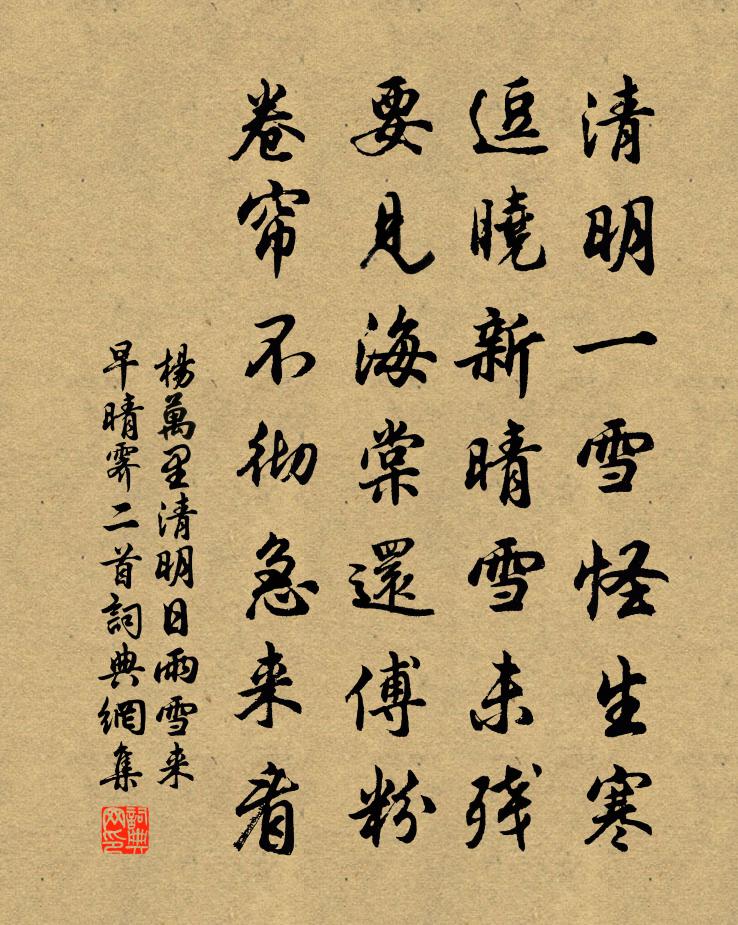 清明一雪怪生寒
逗曉新晴雪未残
要見海棠還傅粉
卷帘不彻急来看
楊萬里清明日雨雪来
早晴霁二首詞典網集
詞典
网印